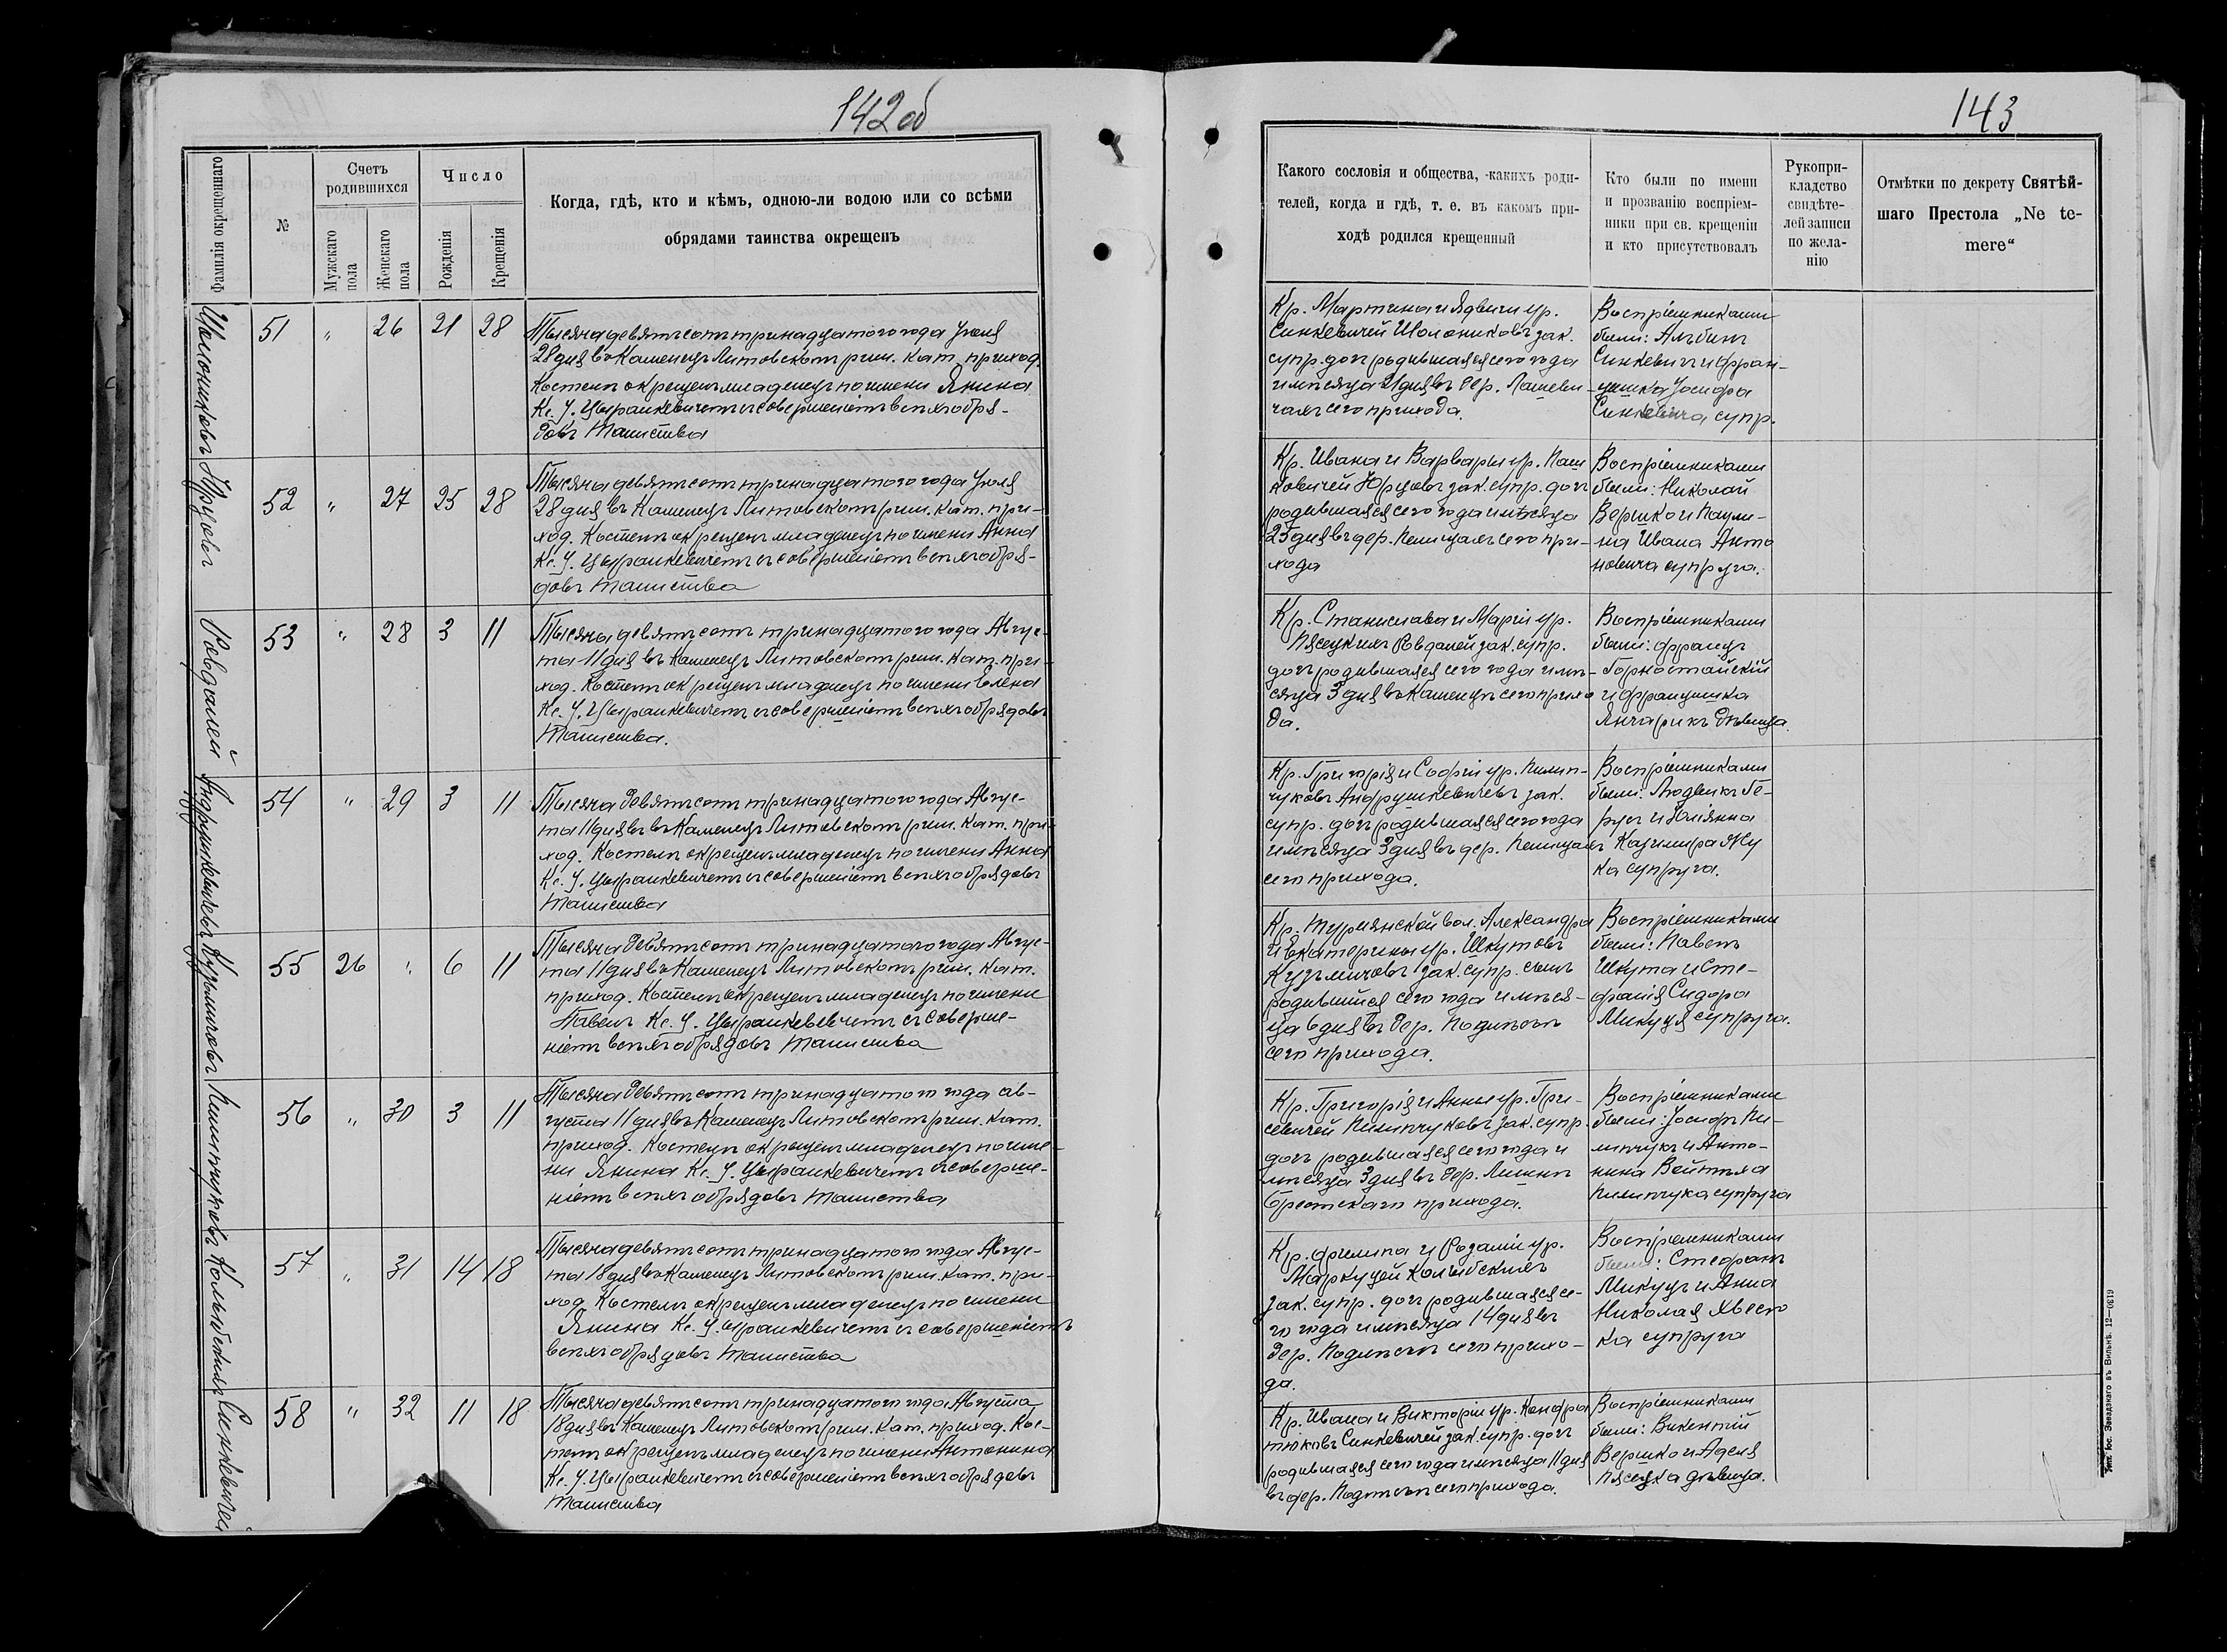 142об
Фамилія окрещеннаго
№
Счетъ
родившихся
Мужскаго
пола
Женскаго
пола
Число
Рожденія
Крещенія
Когда, гдѣ, кто и кѣмъ, одною-ли водою или со всѣми
обрядами таинства окрещенъ
51 " 26 21 28
Тысяча девятьсотъ тринадцатого года Іюля
28 дня въ Каменецъ Литовскомъ рим. кат. приход.
Костелѣ окрещенъ младенецъ по имени Янина
Кс. І. Цыранкевичемъ съ совершеніемъ всѣхъ обря-
довъ Таинства
Юрцовъ
52 " 27 25 28
Тысяча девятьсотъ тринадцатого года Іюля
28 дня въ Каменецъ Литовскомъ рим. кат. при-
ход. Костелѣ окрещенъ младенецъ по имени Анна
Кс. І. Цыранкевичемъ съ совершеніемъ всѣхъ обря-
довъ Таинства
Ровдалей
53 " 28 3 11
Тысяча девятьсотъ тринадцатого года Авгус-
та 11 дня въ Каменецъ Литовскомъ рим. кат. при-
ход. Костелѣ окрещенъ младенецъ по имени Елена
Кс. І. Цыранкевичемъ съ совершеніемъ всѣхъ обрядовъ
Таинства.
Андрушкевичевъ
54 " 29 3 11
Тысяча девятьсотъ тринадцатого года Авгус-
та 11 дня въ Каменецъ Литовскомъ рим. кат. при-
ход. Костелѣ окрещенъ младенецъ по имени Анна
Кс. І. Цыранкевичемъ съ совершеніемъ всѣхъ обрядовъ
Таинства
Кузьмичовъ
55 26 " 6 11
Тысяча девятьсотъ тринадцатого года Авгус-
та 11 дня въ Каменецъ Литовскомъ рим. кат.
приход. Костелѣ окрещенъ младенецъ по имени
Павелъ Кс. І. Цыранкевичемъ съ соверше-
ніемъ всѣхъ обрядовъ Таинства
Пилипчуковъ
56 " 30 3 11
Тысяча девятьсотъ тринадцатого года ав-
густа 11 дня въ Каменецъ Литовскомъ рим. кат.
приход. Костелѣ окрещенъ младенецъ по име-
ни Янина Кс. І. Цыранкевичемъ съ соверше-
ніемъ всѣхъ обрядовъ Таинства
57 " 31 14 18
Тысяча девятьсотъ тринадцатого года Авгус-
та 18 дня въ Каменецъ Литовскомъ рим. кат. при-
ход. Костелѣ окрещенъ младенецъ по имени
Янина Кс. І. Цыранкевичемъ съ совершеніемъ
всѣхъ обрядовъ Таинства
Синкевичей
58 " 32 11 18
Тысяча девятьсотъ тринадцатого года Августа
18 дня въ Каменецъ Литовскомъ рим. кат. приход. Кос-
телѣ окрещенъ младенецъ по имени Антонина
Кс. І. Цыранкевичемъ съ совершеніемъ всѣхъ обрядовъ
Таинства
143
Какого сословія и общества, -какихъ роди-
телей, когда и гдѣ, т. е. въ какомъ при-
ходѣ родился крещенный
Кто были по имени
и прозванію воспріем-
ники при св. крещеніи
и кто присутствовалъ
Рукопри-
кладство
свидѣте-
лей записи
по жела-
нію
Отмѣтки по декрету Святѣй-
шаго Престола „Ne te-
mere“
Кр. Мартина и Ядвиги ур.
Синкевичей зак.
супр. дочь родившаяся сего года
и мѣсяца 21 дня въ дер. Лашеви-
чахъ сего прихода.
Воспріемниками
были: Альбинъ
Синкевичъ и Фран-
цишка Іосифа
Синкевича супр.
Кр. Ивана и Варвары ур. Паш
ковичей Юрцовъ зак. супр. дочь
родившаяся сего года и мѣсяца
25 дня въ дер. Пелищахъ сего при-
хода
Воспріемниками
были: Николай
Вершко и Паули-
на Ивана Анто
новича супруга.
Кр. Станислава и Маріи ур.
Пясецкихъ Ровдалей зак. супр.
дочь родившаяся сего года и мѣ-
сяца 3 дня въ Каменцѣ сего прихо
да.
Воспріемниками
были: Францъ
Горностайскій
и Францишка
Янчарикъ дѣвица.
Кр. Григорія и Софіи ур. Пилип-
чуковъ Андрушкевичевъ зак.
супр. дочь родившаяся сего года
и мѣсяца 3 дня въ дер. Пелищахъ
сего прихода.
Воспріемниками
были: Людвикъ Ге-
русъ и Юліянна
Казимира Жу
ка супруга.
Кр. Турнянской вол. Александра
и Екатерины ур. Шкутовъ
Кузьмичовъ зак. супр. сынъ
родившійся сего года и мѣся-
ца 6 дня въ дер.
сего прихода.
Воспріемниками
были: Павелъ
Шкута и Сте-
фанія Сидора
Микуця супруга.
Кр. Григорія и Анны ур. Гри-
севичей Пилипчуковъ зак. супр.
дочь родившаяся сего года и
мѣсяца 3 дня въ дер.
Брестскаго прихода.
Воспріемниками
были: Іосифъ Пи-
липчукъ и Анто-
нина Войтѣха
Пилипчука супруга
Кр. Филипа и Розаліи ур.
Маркуцей
зак. супр. дочь родившаяся се-
го года и мѣсяца 14 дня въ
дер. сего прихо-
да.
Воспріемниками
были: Стефанъ
Микуцъ и Анна
Николая
супруга
Кр. Ивана и Викторіи ур. Кондра
тюковъ Синкевичей зак. супр. дочь
родившаяся сего года и мѣсяца 11 дня
въ дер. сего прихода.
Воспріемниками
были: Викентій
Вершко и Аделя
Пясецка дѣвица.
Тип. Іос. Завадзкаго въ Вильнѣ. 12—0319